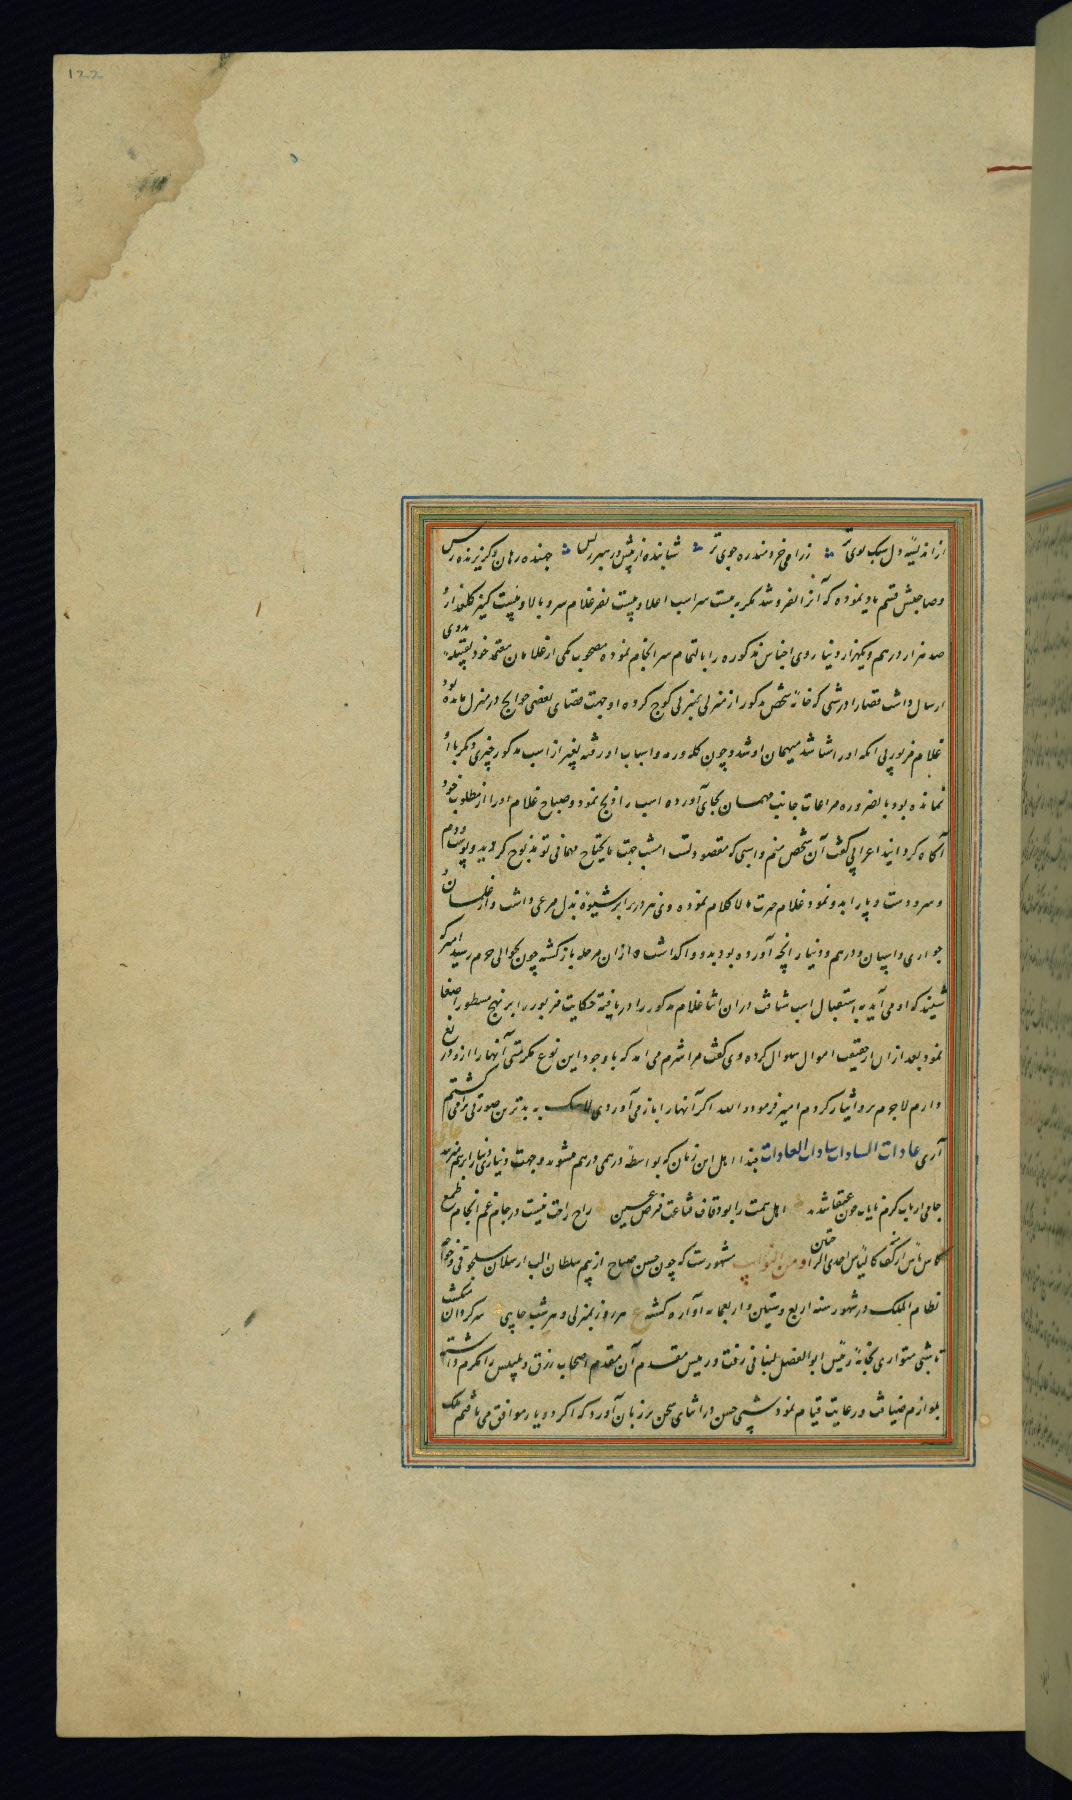 122
از اندیشه دل سبک پوی تر ز رای خردمند ره جوی تر شتابنده از پیش و رهبر ز پس جهنده رهان و گریزنده رس
و صاحبش قسم یاد نموده که آنرا نفروشد مگر به بیست سر اسب اعلا و بیست نفر غلام سرو بالا و بیست کنیز گلعذار و
صد هزار درهم و یکهزار دینار وی اجناس مذکوره را بالتمام سرانجام نموده مصحوب یکی از غلامان معتمد خود بقبیله بدوی
ارسال داشت قضا را در شبی که خانه شخص مذکور از منزلی بمنزلی کوچ کرده او جهت قضای بعضی حوایج در منزل مانده بود
غلام مزبور بی آنکه او را شناسد میهمان او شد و چون گله و رمه و اسباب او رفته بغیر از اسب مذکور چیزی دیگر با او
نمانده بود بالضروره مراعات جانب مهمان بجای آورده اسب را ذبح نمود و صباح غلام او را از مطلوب خود
آگاه گردانید اعرابی گفت آن شخص منم و اسبی که مقصود تست امشب جهت مایحتاج مهمانی تو مذبوح گردید و پوست و دم
و سر و دست و پا را بدو نمود غلام حیرت مالا کلام نموده وی نیز در برابر شیوه بذل مرعی داشت و از غلمان و
جواری و اسپان و درهم و دینار آنچه آورده بود بدو واگذاشت و از آن مرحله بازگشته چون بحوالی حرم رسید امیر که
شنید که او می آید به استقبال اسب شتافت در آن اثنا غلام مذکور را دریافته حکایت مزبور را بر نهج مسطور اصغا
نمود بعد از آن از حقیقت اموال سوال کرده وی گفت مرا شرم می آمد که با وجود این نوع مکرمتی آنها را از او دریغ
دارم لاجرم بر او ایثار کردم امیر فرمود و الله اگر آنها را باز می آوردی ترا به بدترین صورتی می کشتم
آری عادات السادات سادات العادات نه از اهل این زمان که بواسطه درهمی درهم میشوند و جهت دیناری دینار را برهم میزنند
جامی ارباب کرم نایاب چون عنقا شدند اهل همت را بود قاف قناعت فرض عین راح راحت نیست در جام غم انجام طمع
کاس یأس از کف که الیأس احدی الراحتین و من النوایب مشهورست که چون حسن صباح از بیم سلطان الب ارسلان سلجوقی و خواجه
نظام الملک در شهور سنه اربع و ستین و اربعمایه آواره گشته ع هر روز بمنزلی و هر شب جایی سرگردان میگشت
تا شبی متواری بخانه رئیس ابوالفضل لنبانی رفت و رئیس مقدم آن مقدم اصحاب رزق و تلبیس را مکرم داشته
بلوازم ضیافت و رعایت قیام نمود شبی حسن در اثنای سخن بر زبان آورد که اگر دو یار موافق می یافتم ملک